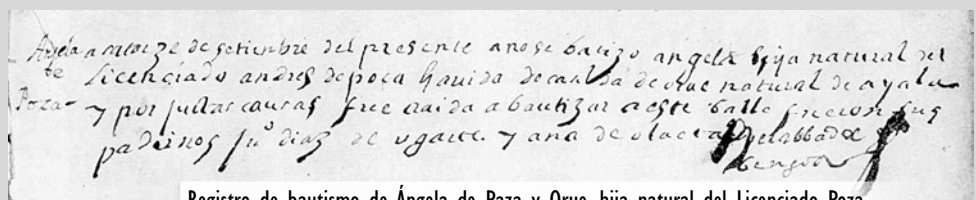 Angela a catorze de setienbre del presente año se batizo angela hija natural del
de licenciado andres de poça havida de casilda de orue natural de ayala
Poza y por justas causas fue traida a bautizar a este balle fueron sus
padrinos ju.º diaz de ugarte y ana de olaeta
Registro de bautismo de Ángela de Poza y Orue, hija natural del Licenciado Poza